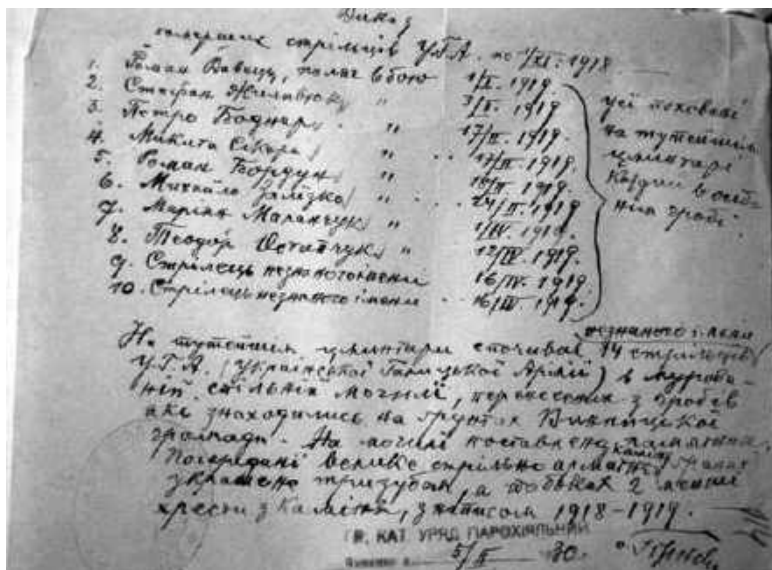 Виказ
померших стрільців У.Г.А. по 1/XI. 1918
1. Роман , поляг в бою 1919.
2. Стефан " 1919.
3. Петро Боднар " 17/II. 1919.
4. Микита Сікора " 17/II. 1919.
5. Роман Бордун " 1919.
6. Михайло Залізко " 24/II. 1919.
7. Маріян Маранчук " 1/IV. 1919.
8. Теодор Остапчук " 12/IV. 1919.
9. Стрілець незнаного імени 16/IV. 1919.
10. Стрілець незнаного імени 16/IV. 1919.
усі поховані
на тутейшім
цминтарі
кождий в осіб-
нім гробі.
незнаного імени
На тутейшим цминтари спочиває 14 стрільців
У.Г.А. (Української Галицької Армії) в
ній спільній могилі, перенесених з гробів
які знаходились на ґрунтах Винницької
громади. На могилі поставлено памятник.
Посередині велике стрільно арматне
украшене тризубом, а по боках 2 менші
хрести з каміня, з написом 1918-1919.
ГР. КАТ. УРЯД ПАРОХІЯЛЬНИЙ
5/II 30.